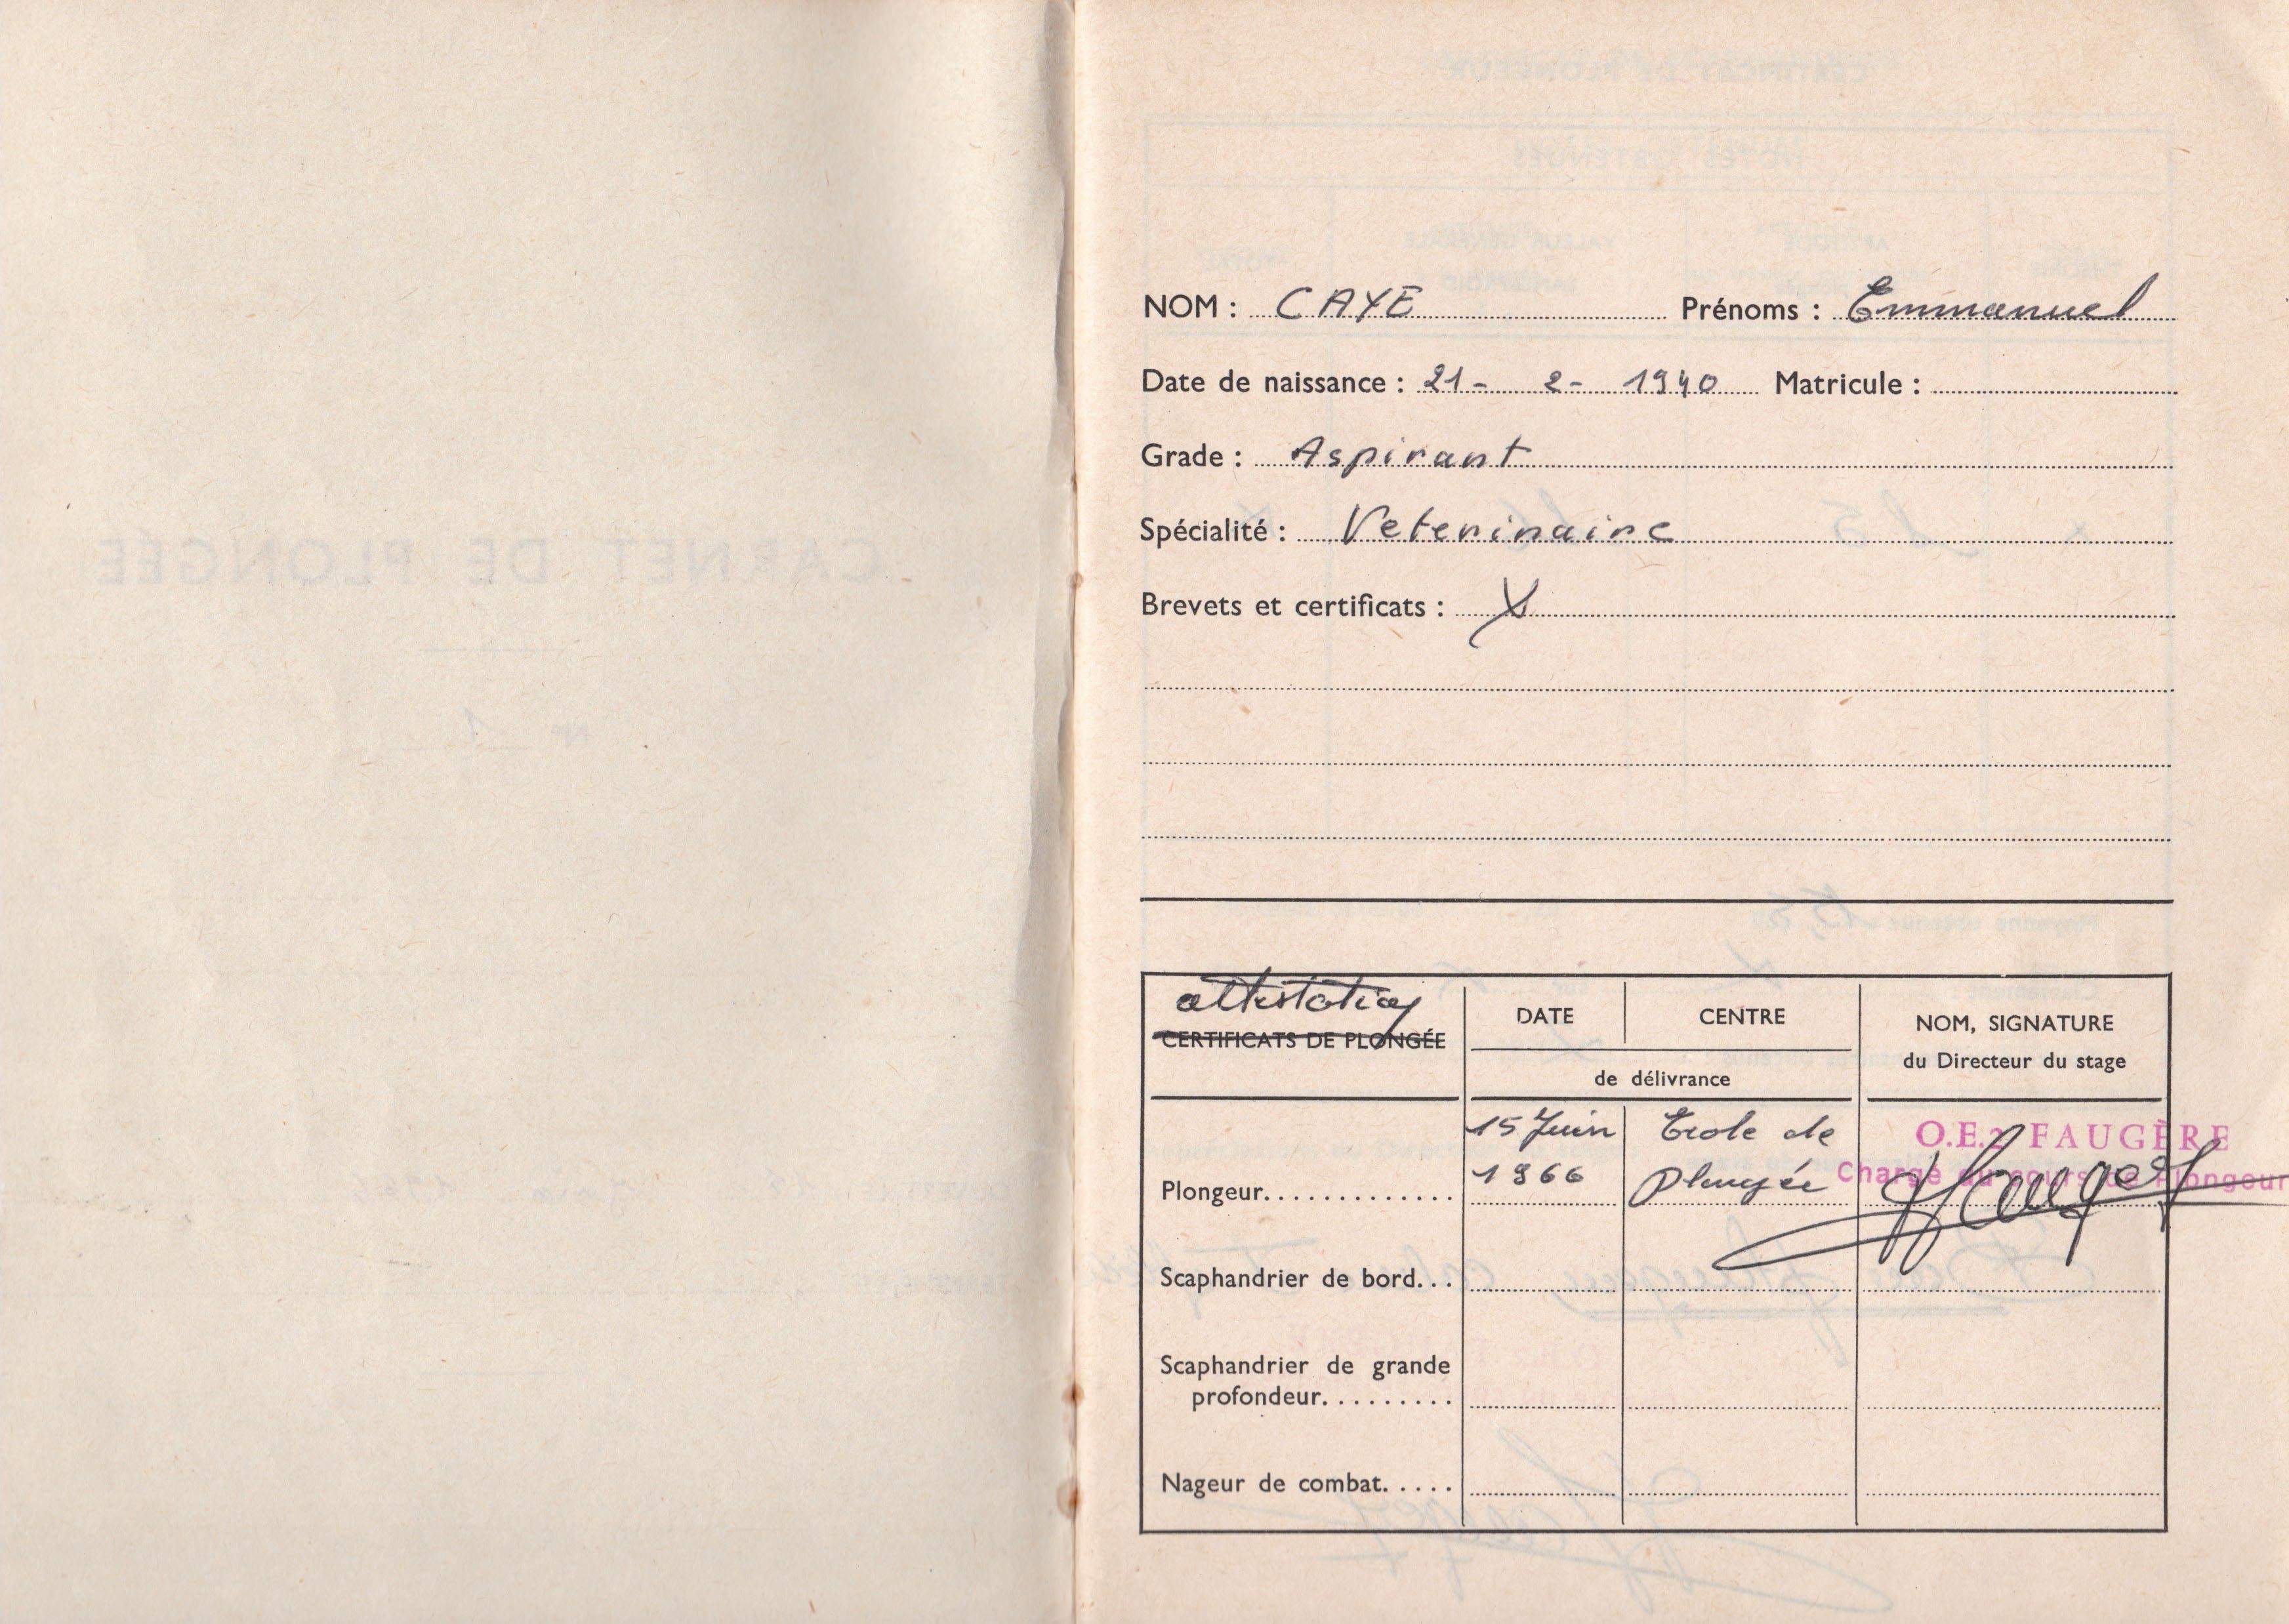 NOM : CAYE Prénoms : Emmanuel
Date de naissance : 21- 2- 1940 Matricule :
Grade : Aspirant
Spécialité : Veterinaire
Brevets et certificats : X
attestation
CERTIFICATS DE PLONGÉE
DATE
CENTRE
de délivrance
NOM, SIGNATURE
du Directeur du stage
Plongeur.............
15 Juin
1966
Ecole de
Plongée
O.E.2 FAUGÈRE
Chargé du cours de Plongeur
Scaphandrier de bord...
Scaphandrier de grande
profondeur.........
Nageur de combat.....
CARNET DE PLONGÉE
Nº 1